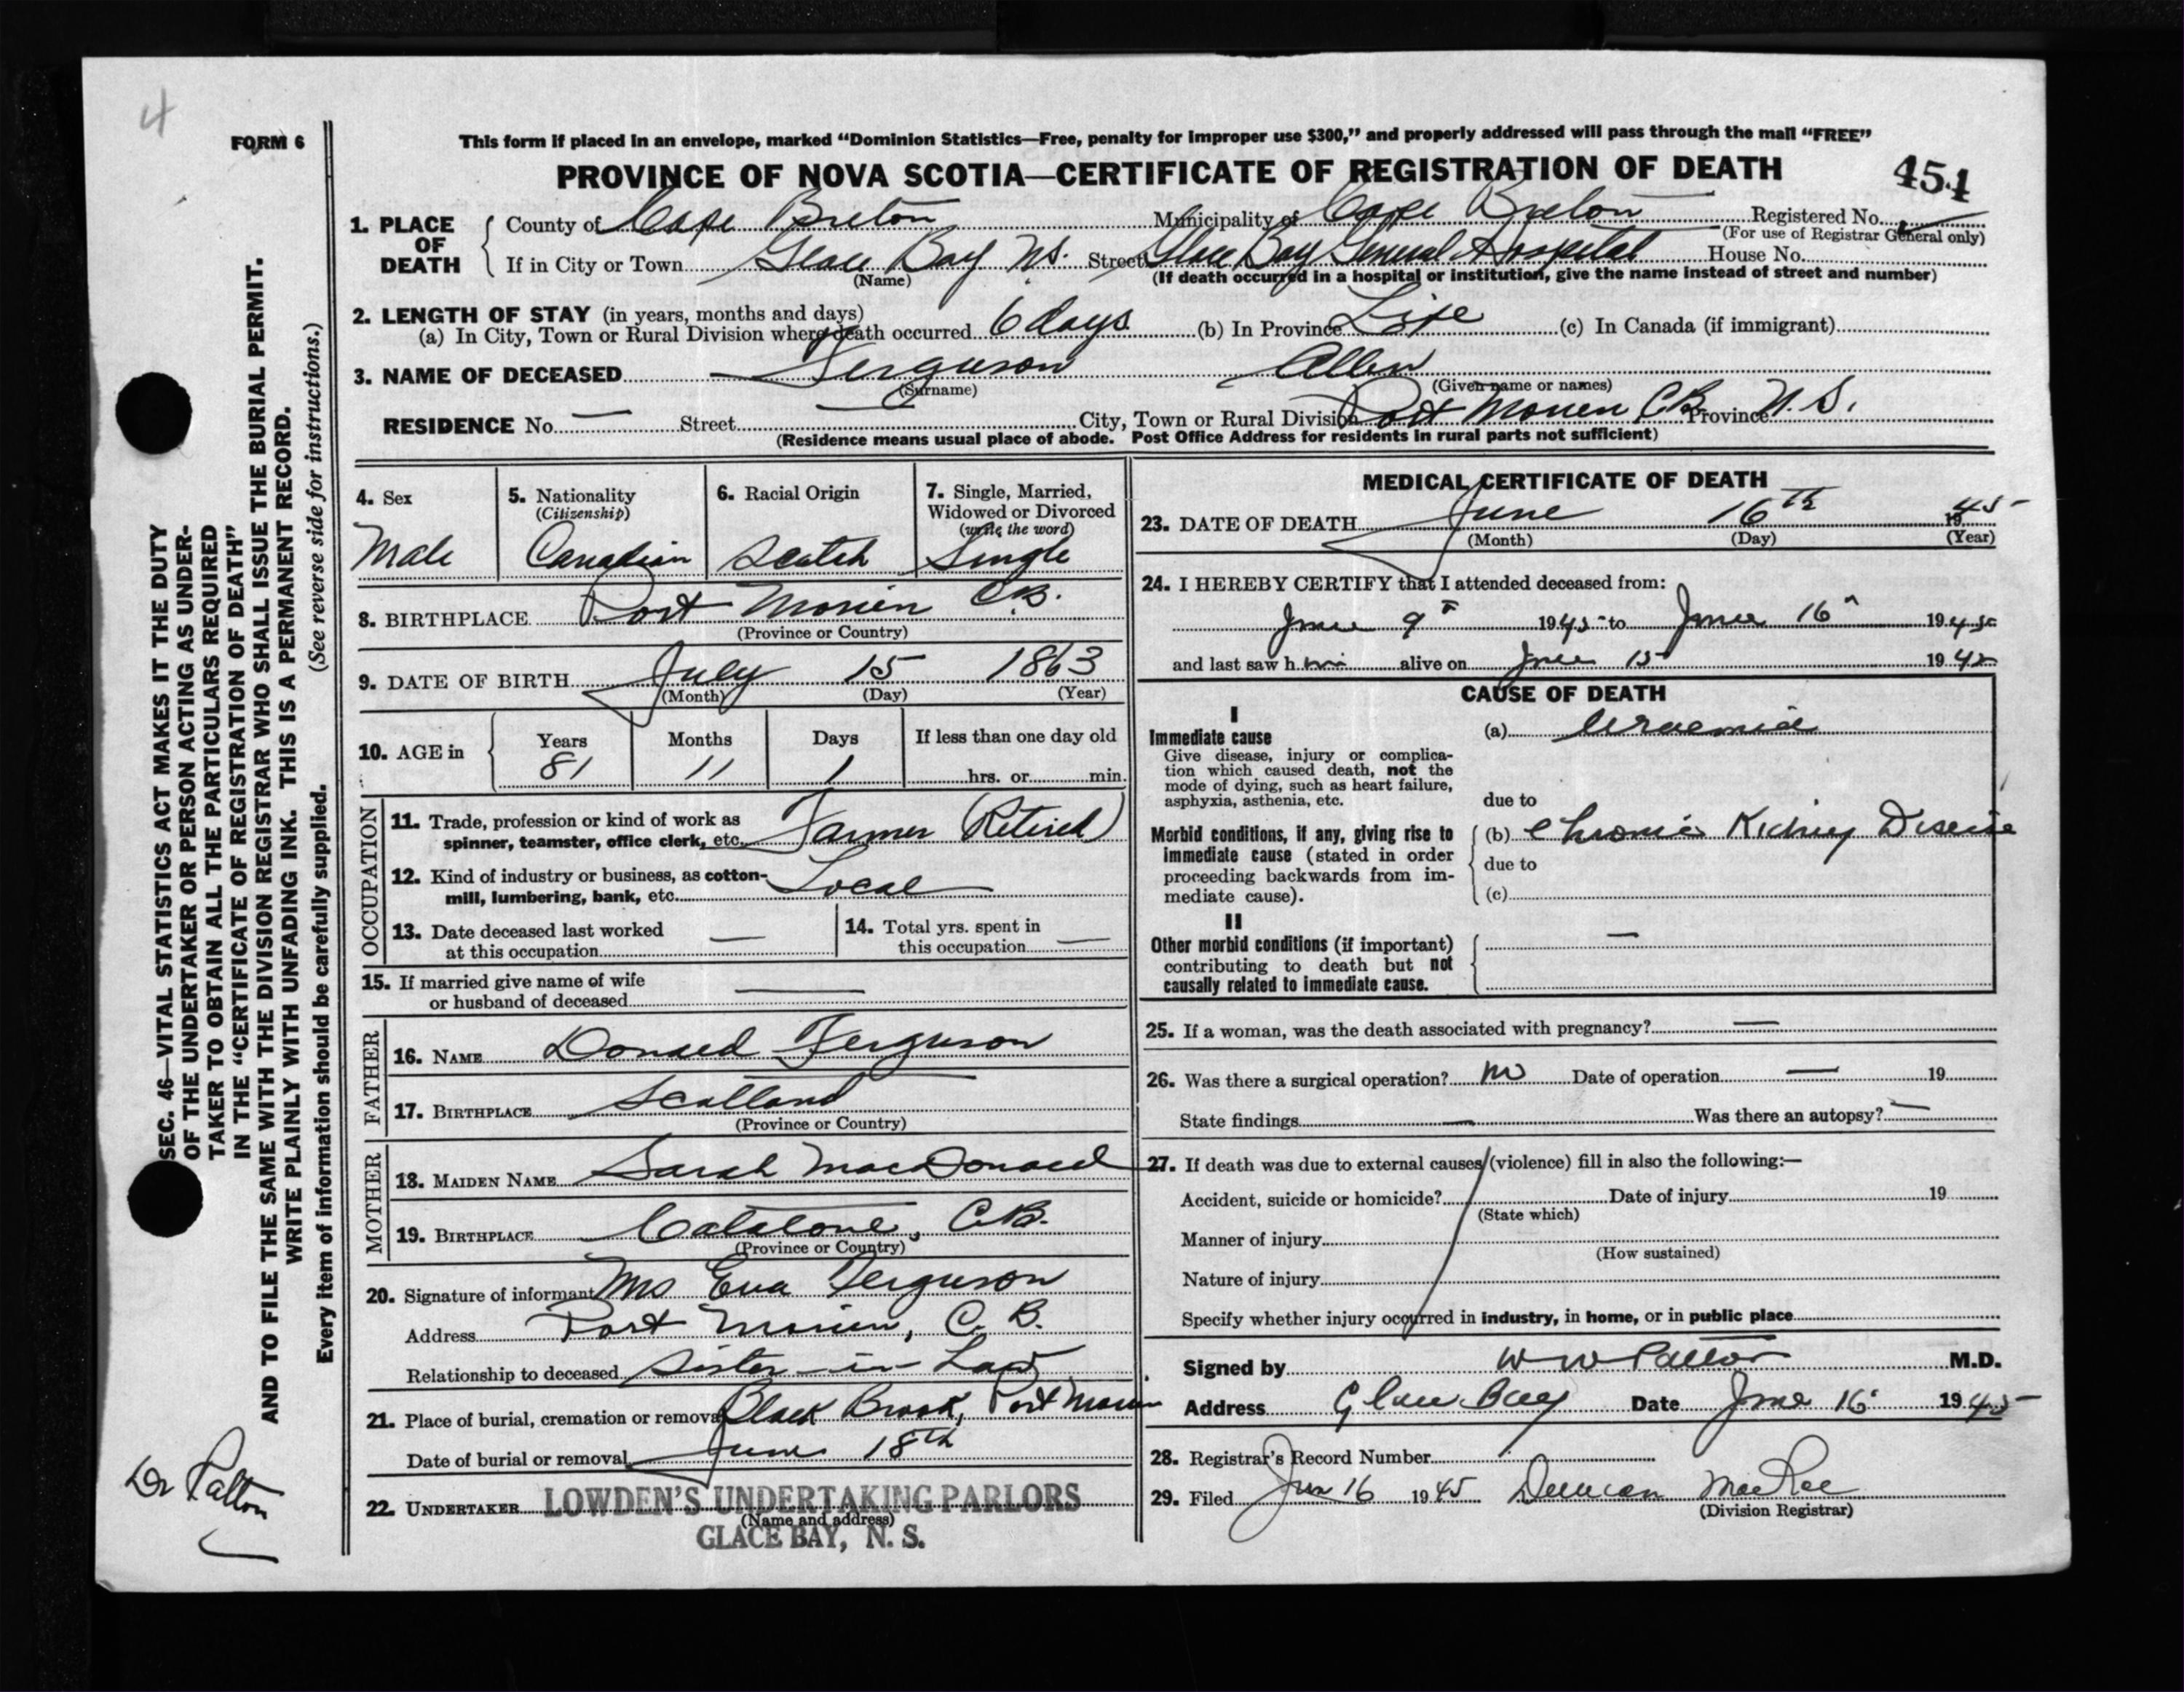 4
FORM 6
This form if placed in an envelope, marked “Dominion Statistics—Free, penalty for improper use $300,” and properly addressed will pass through the mail “FREE”
PROVINCE OF NOVA SCOTIA—CERTIFICATE OF REGISTRATION OF DEATH
454
1. PLACE OF DEATH
County of Cape Breton Municipality of Cape Breton Registered No.
(For use of Registrar General only)
If in City or Town Glace Bay N.S. Street Glace Bay General Hospital House No.
(Name) (If death occurred in a hospital or institution, give the name instead of street and number)
2. LENGTH OF STAY (in years, months and days)
(a) In City, Town or Rural Division where death occurred 6 days (b) In Province Life (c) In Canada (if immigrant)
3. NAME OF DECEASED Ferguson Allen
(Surname) (Given name or names)
RESIDENCE No. — Street — City, Town or Rural Division Port Morien C.B. Province N.S.
(Residence means usual place of abode. Post Office Address for residents in rural parts not sufficient)
4. Sex
Male
5. Nationality
(Citizenship)
Canadian
6. Racial Origin
Scotch
7. Single, Married,
Widowed or Divorced
(write the word)
Single
8. BIRTHPLACE Port Morien C.B.
(Province or Country)
9. DATE OF BIRTH July 15 1863
(Month) (Day) (Year)
10. AGE in
Years Months Days If less than one day old
81 11 1 hrs. or min.
OCCUPATION
11. Trade, profession or kind of work as
spinner, teamster, office clerk, etc. Farmer (Retired)
12. Kind of industry or business, as cotton-
mill, lumbering, bank, etc. Local
13. Date deceased last worked
at this occupation —
14. Total yrs. spent in
this occupation —
15. If married give name of wife
or husband of deceased —
FATHER
16. NAME Donald Ferguson
17. BIRTHPLACE Scotland
(Province or Country)
MOTHER
18. MAIDEN NAME Sarah MacDonald
19. BIRTHPLACE Catalone, C.B.
(Province or Country)
20. Signature of informant Mrs Eva Ferguson
Address Port Morien, C.B.
Relationship to deceased Sister-in-Law
21. Place of burial, cremation or removal Black Brook, Port Morien
Date of burial or removal June 18th
22. UNDERTAKER LOWDEN'S UNDERTAKING PARLORS
(Name and address)
GLACE BAY, N. S.
MEDICAL CERTIFICATE OF DEATH
23. DATE OF DEATH June 16th 1945
(Month) (Day) (Year)
24. I HEREBY CERTIFY that I attended deceased from:
June 9th 1945 to June 16th 1945
and last saw him alive on June 15 1945
CAUSE OF DEATH
I
Immediate cause
Give disease, injury or complica-
tion which caused death, not the
mode of dying, such as heart failure,
asphyxia, asthenia, etc.
(a) Uraemia
due to
Morbid conditions, if any, giving rise to
immediate cause (stated in order
proceeding backwards from im-
mediate cause).
(b) Chronic Kidney Disease
due to
(c)
II
Other morbid conditions (if important)
contributing to death but not
causally related to immediate cause.
—
25. If a woman, was the death associated with pregnancy? —
26. Was there a surgical operation? no Date of operation — 19
State findings — Was there an autopsy? —
27. If death was due to external causes (violence) fill in also the following:—
Accident, suicide or homicide? Date of injury 19
(State which)
Manner of injury
(How sustained)
Nature of injury
Specify whether injury occurred in industry, in home, or in public place
Signed by W W Patton M.D.
Address Glace Bay Date June 16 1945
28. Registrar's Record Number
29. Filed Jun 16 1945 Duncan MacRae
(Division Registrar)
SEC. 46—VITAL STATISTICS ACT MAKES IT THE DUTY
OF THE UNDERTAKER OR PERSON ACTING AS UNDER-
TAKER TO OBTAIN ALL THE PARTICULARS REQUIRED
IN THE “CERTIFICATE OF REGISTRATION OF DEATH”
AND TO FILE THE SAME WITH THE DIVISION REGISTRAR WHO SHALL ISSUE THE BURIAL PERMIT.
WRITE PLAINLY WITH UNFADING INK. THIS IS A PERMANENT RECORD.
Every item of information should be carefully supplied. (See reverse side for instructions.)
Dr Patton